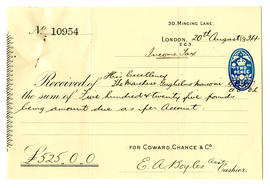 30, MINCING LANE.
No 10954
LONDON, 20th August 1934
E.C.3.
Income Tax
Received of His Excellency
The Marchese Guglielmo Marconi
the sum of Five hundred & twenty five pounds
being amount due as per Account.
FOR COWARD, CHANCE & Co.
£525.0.0
E.A. Boyles
Cashier.